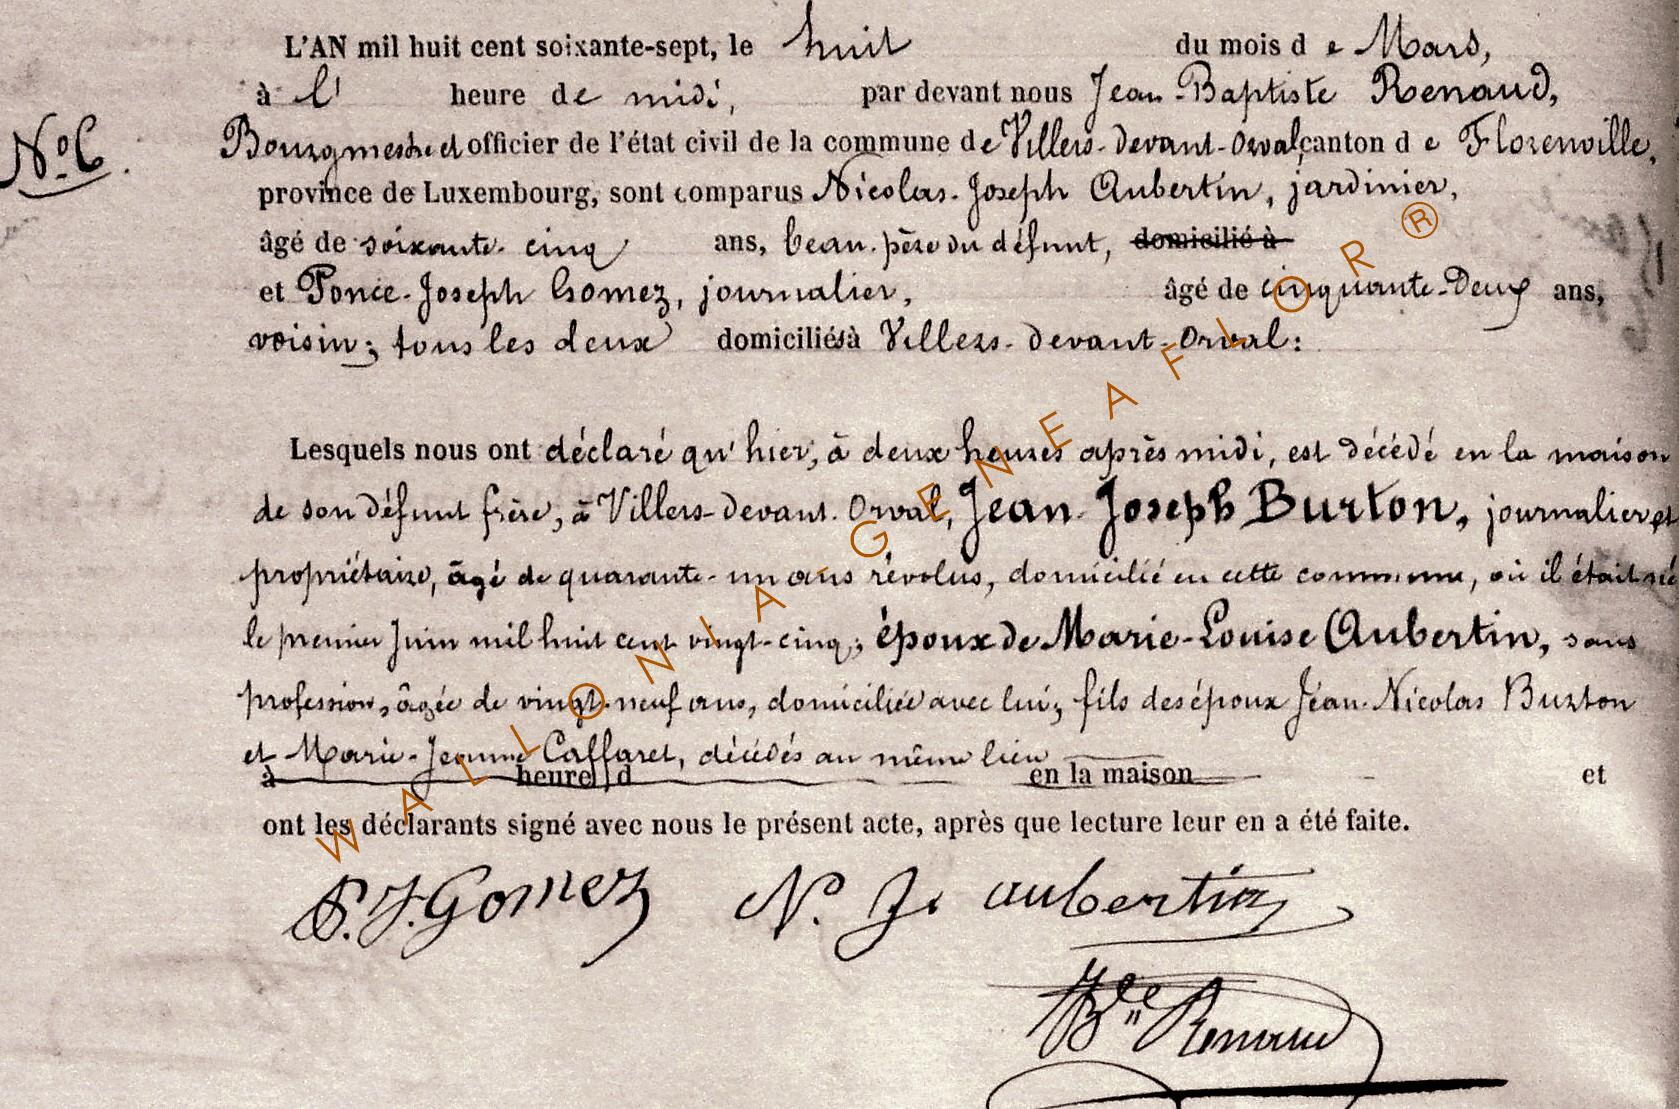 L'AN mil huit cent soixante-sept, le huit du mois d e Mars,
à l' heure de midi, par devant nous Jean-Baptiste Renaud,
N.o 6. Bourgmestre et officier de l'état civil de la commune de Villers-devant-Orval, canton d e Florenville,
province de Luxembourg, sont comparus Nicolas-Joseph Aubertin, jardinier,
âgé de soixante-cinq ans, beau-père du défunt, domicilié à
et Ponce-Joseph Gomez, journalier, âgé de cinquante-deux ans,
voisin; tous les deux domiciliés à Villers-devant-Orval:
Lesquels nous ont déclaré qu'hier, à deux heures après midi, est décédé en la maison
de son défunt frère, à Villers-devant-Orval, Jean-Joseph Burton, journalier et
propriétaire, âgé de quarante-un ans révolus, domicilié en cette commune, où il était né
le premier Juin mil huit cent vingt-cinq; époux de Marie-Louise Aubertin, sans
profession, âgée de vingt-neuf ans, domiciliée avec lui; fils des époux Jean-Nicolas Burton
et Marie-Jeanne Caffaret, décédés au même lieu
à heure d en la maison et
ont les déclarants signé avec nous le présent acte, après que lecture leur en a été faite.
P. J. Gomez N. J. aubertin
Bte Renaud
WALLONIA-GENEAFLOR®